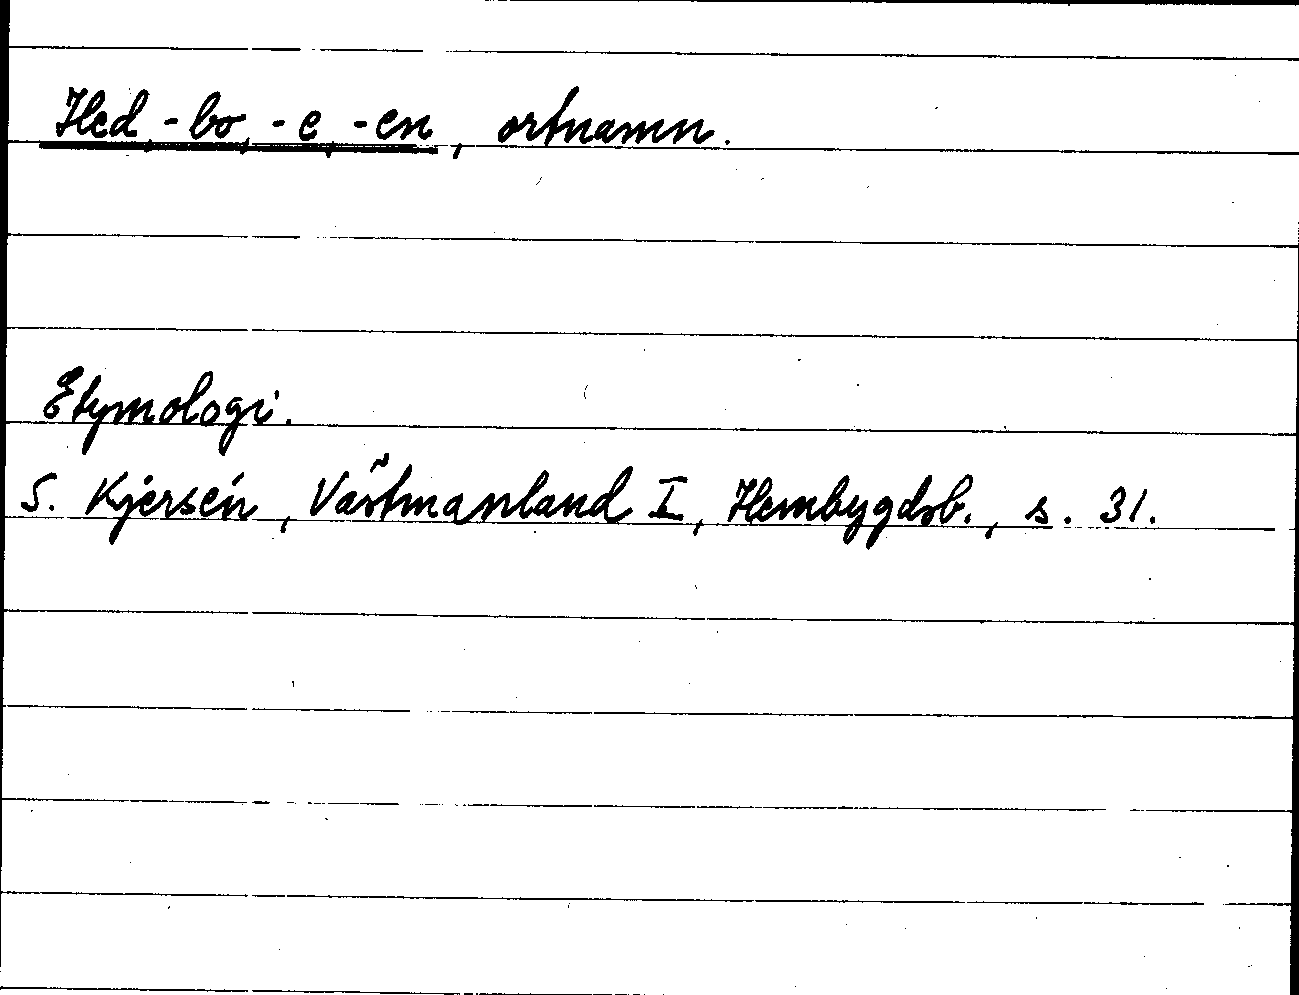 Hed, -bo, -e, -en, ortnamn.
Etymologi.
S. Kjersén, Västmanland I, Hembygdsb., s. 31.